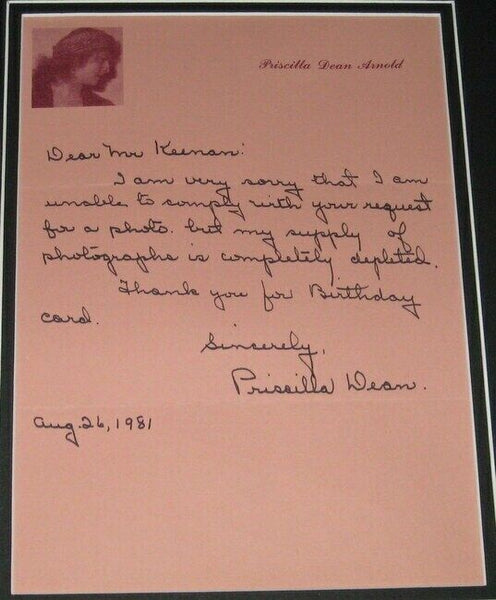 Priscilla Dean Arnold
Dear Mr Keenan:
I am very sorry that I am
unable to comply with your request
for a photo. but my supply of
photographs is completely depleted.
Thank you for Birthday
card.
Sincerely,
Priscilla Dean.
Aug. 26, 1981